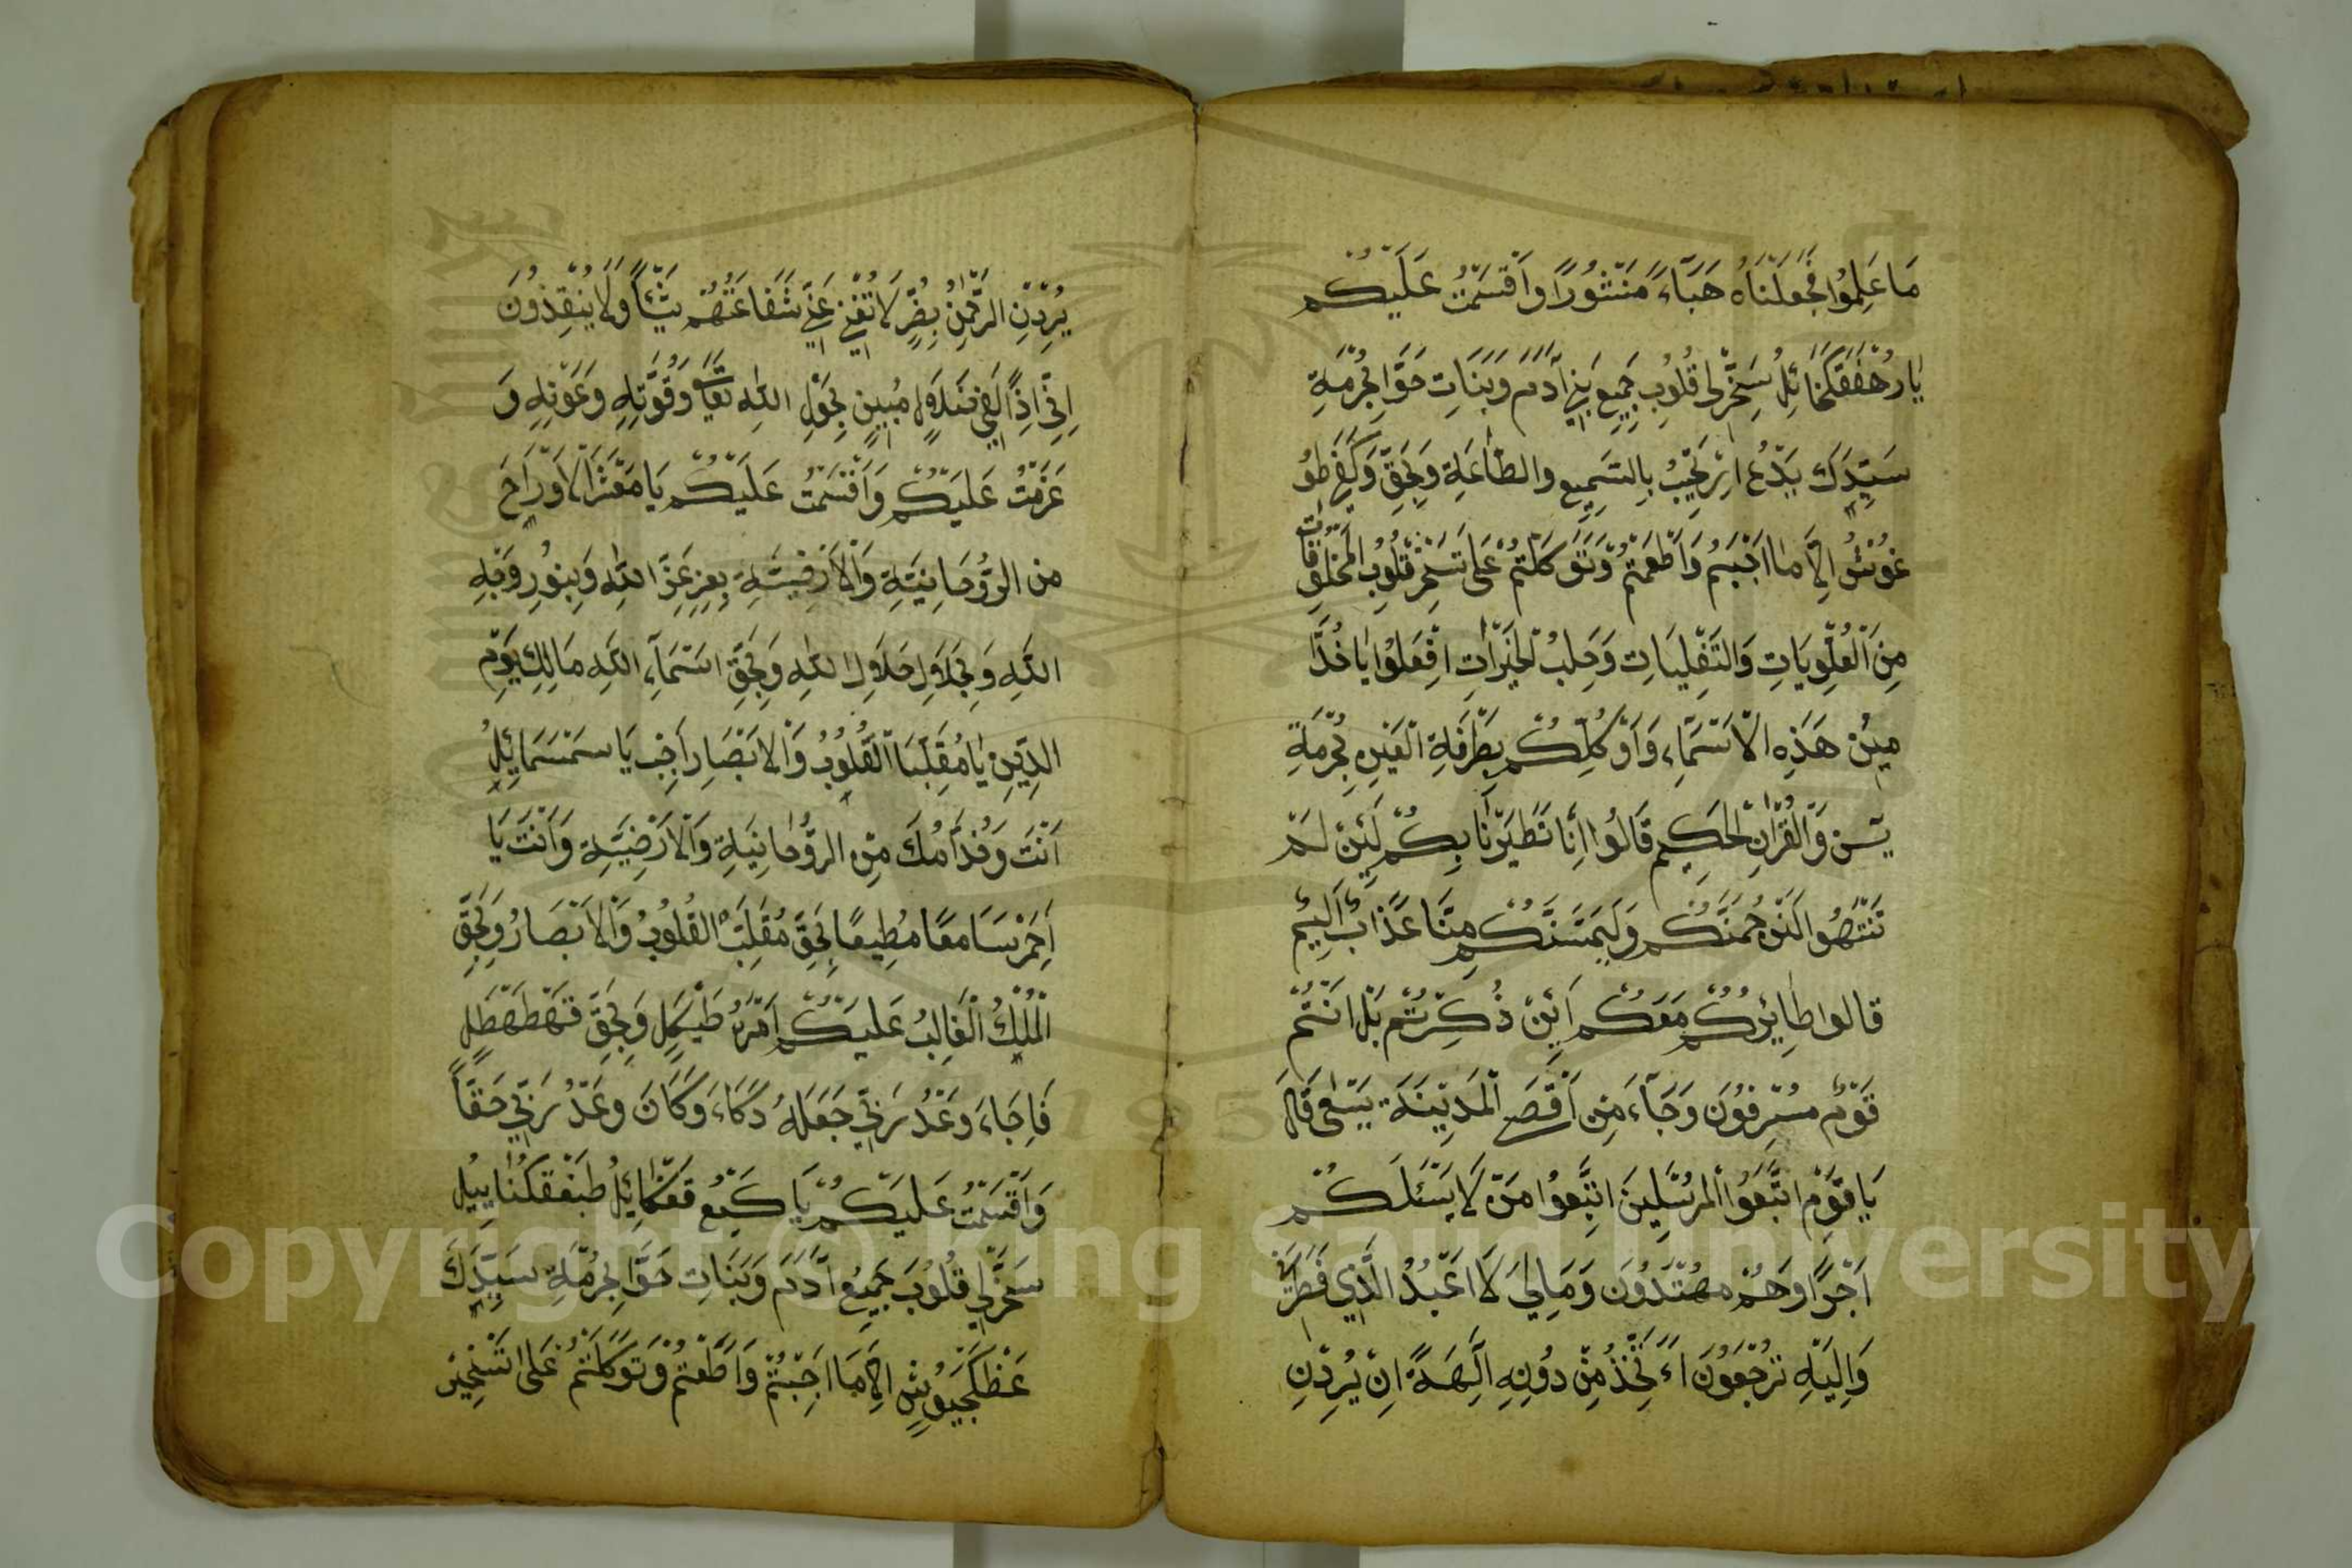 مَا عَلِمُوا فَجَعَلْنَاهُ هَبَآءً مَنْثُورًا وَاَقْسَمْتُ عَلَيْكُمْ
يَارُهْفَقَكْحَائِلُ سَخِّرْلِى قُلُوبِ جَمِيعِ بَنِى آدَمَ وَبَنَاتِ حَوَّا بِحُرْمَةِ
سَيِّدِكَ بَدُّعُ بِالسَّمِيعِ وَالطَّاعَةِ وَبِحَقِّ
اِلَّا مَا اَجَبْتُمْ وَاَطَعْتُمْ وَتَوَكَّلْتُمْ عَلَى تَسْخِيرْ قُلُوبِ الْمَخْلُوقَاتِ
مِنَ الْعُلْوِيَاتِ وَالسِّفْلِيَاتِ وَجَلْبُ الْخَيْرَاتِ اِفْعَلُوا يَاخُدَّا
مِيْن هَذِهِ الْاَسْمَآءِ وَاَوْكِلُكُمْ بِطَرْفَةِ الْعَيْنِ بِحُرْمَةِ
يٓسٓ وَالْقُرْآنِ الْحَكِيمِ قَالُوا اِنَّا تَطَيَّرْنَا بِكُمْ لَئِنْ لَمْ
تَنْتَهُوا لَنَرْجُمَنَّكُمْ وَلَيَمَسَّنَّكُمْ مِنَّا عَذَابٌ اَلِيْمٌ
قَالُوا طَائِرُكُمْ مَعَكُمْ اَئِنْ ذُكِّرْتُمْ بَلْ اَنْتُمْ
قَوْمٌ مُسْرِفُونَ وَجَآءَ مِن اَقْصَى الْمَدِيْنَةِ يَسْعَى قَالَ
يَاقَوْمِ اتَّبِعُوا الْمُرْسَلِينَ اتَّبِعُوا مَنْ لَا يَسْئَلُكُمْ
اَجْرًا وَهُمْ مُهْتَدُونَ وَمَالِيَ لَا اَعْبُدُ الَّذِي فَطَرَنِى
وَاِلَيْهِ تُرْجَعُونَ ءَاَتَّخِذُ مِنْ دُونِهِ آلِهَةً اِنْ يُرِدْنِ
يُرِدْنِ الرَّحْمٰنُ بِضُرٍّ لَا تُغْنِ عَنِّي شَفَاعَتُهُمْ شَيْئًا وَلَا يُنْقِذُونَ
اِنِّي اِذًا لَفِي ضَلَالٍ مُبِينٍ بِحَوْلِ اللهِ تَعَالَى وَقُوَّتِهِ وَعَوْنِهِ وَ
عَزَمْتُ عَلَيْكُمْ وَاَقْسَمْتُ عَلَيْكُمْ يَا مَعْشَرَ الْاَوْرَاحَ
مِن الرُّوحَانِيَّةِ وَالْاَرْضِيَّةِ بِعِزِ عِزِّ اللهِ وَبِنُورِ وَجْهِ
اللهِ وَبِجَلَالِ جَلَالِ اللهِ وَبِحَقِّ اَسْمَآءِ اللهِ مَالِكِ يَوْمِ
الدِّيْنِ يَا مُقَلِّبَا الْقُلُوبُ وَالْاَبْصَارِ اَجِبْ يَا سَمْسَمَائِيلُ
اَنْتَ وَخُدَّامُكَ مِنِ الرُّوحَانِيَةِ وَالْاَرْضِيَّةِ وَاَنْتَ يَا
اَحْمَرْ سَامِعًا مُطِيعًا بِحَقِّ مُقَلِّبُ الْقُلُوبُ وَالْاَبْصَارُ وَبِحَقِّ
الْمَلِكُ الْغَالِبُ عَلَيْكُمْ اَمْرُهُ طَيْكَلٍ وَبِحَقِّ قَهْطَهْطَلٍ
فَاِجَاءَ وَعْدُ رَبِّي جَعَلَهُ دَكَّاءَ وَكَانَ وَعْدُ رَبِّي حَقًّا
وَاَقْسَمْتُ عَلَيْكُمْ يَا طَبْفَقَكْنَايِيلُ
سَخِّرْلِي قُلُوبَ جَمِيعُ آدَمَ وَبَنَاتِ حَوَّا بِحُرْمَةِ سَيِّدِكَ
اِلَّا مَا اَجَبْتُمْ وَاَطَعْتُمْ وَتَوَكَّلْتُمْ عَلَى تَسْخِيْرِ
Copyright © King Saud University